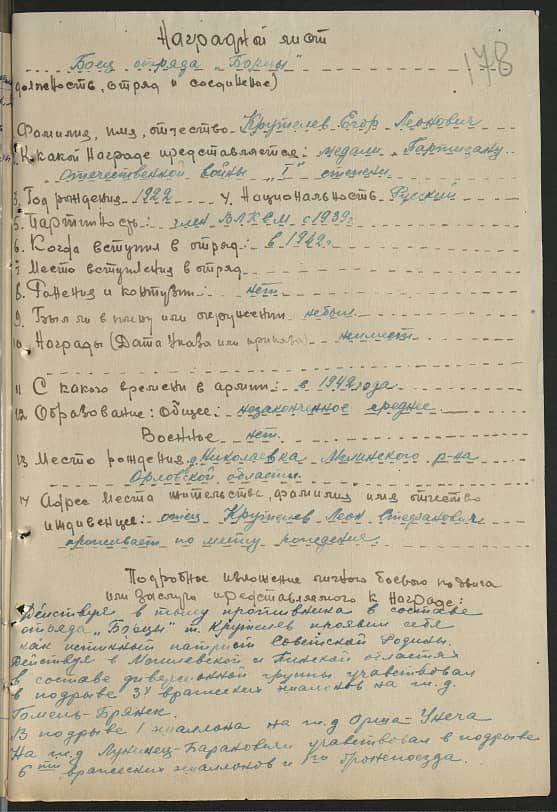 Наградной лист
178
Боец отряда „Борцы"
должность, отряд и соединение)
Фамилия, имя, отчество Крутелев Егор Леонович
2. К какой награде представляется: медали „Партизану
Отечественной войны „I" степени
3. Год рождения 1922 4. Национальность Русский
5. Партийность: член ВЛКСМ с 1939г
6. Когда вступил в отряд: в 1942г
7 Место вступления в отряд
8. Ранения и контузии: нет
9. Был ли в плену или окружении небыл
10. Награды (Дата Указа или приказа) неимеет
11 С какого времени в армии: с 1942 года
12 Образование: Общее: незаконченное среднее
Военное нет
13 Место рождения д. Николаевка Мглинского р-на
Орловской области.
14 Адрес места жительства, фамилия имя отчество
отец Крутелев Леон Стефанович
проживает по месту рождения.
Подробное изложение личного боевого подвига
или заслуги представляемого к награде:
Действуя в тылу противника в составе
отряда „Борцы" т. Крутелев проявил себя
как истинный патриот Советской Родины.
Действуя в Могилевской и Пинской областях
в составе диверсионной группы учавствовал
в подрыве 3х вражеских эшалонов на ж.д.
Гомель-Брянск.
В подрыве 1 эшалона на ж.д Орша-Унеча
На ж.д Лунинец-Барановичи учавствовал в подрыве
6ти вражеских эшалонов и 1го бронепоезда.